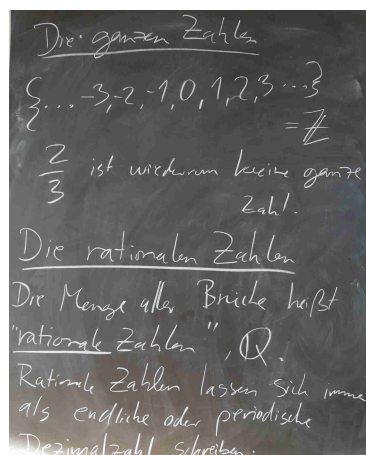 Die ganzen Zahlen
{... -3, -2, -1, 0, 1, 2, 3 ...}
= ℤ
2/3 ist wiederum keine ganze
Zahl.
Die rationalen Zahlen
Die Menge aller Brüche heißt
"rationale Zahlen", ℚ.
Rationale Zahlen lassen sich immer
als endliche oder periodische
Dezimalzahl schreiben.